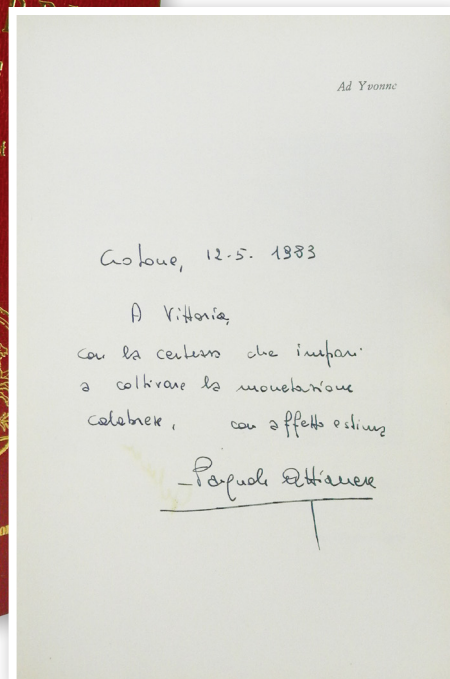 Ad Yvonne
Crotone, 12.5.1983
A Vittoria,
con la certezza che impari
a coltivare la monetazione
calabrese, con affetto e stima
Pasquale Attianese